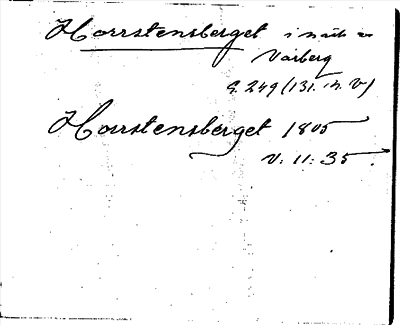 Horrstensberget i
Varberg
S. 249 (131. in. V)
Horrstensberget 1805
V: 11: 35.